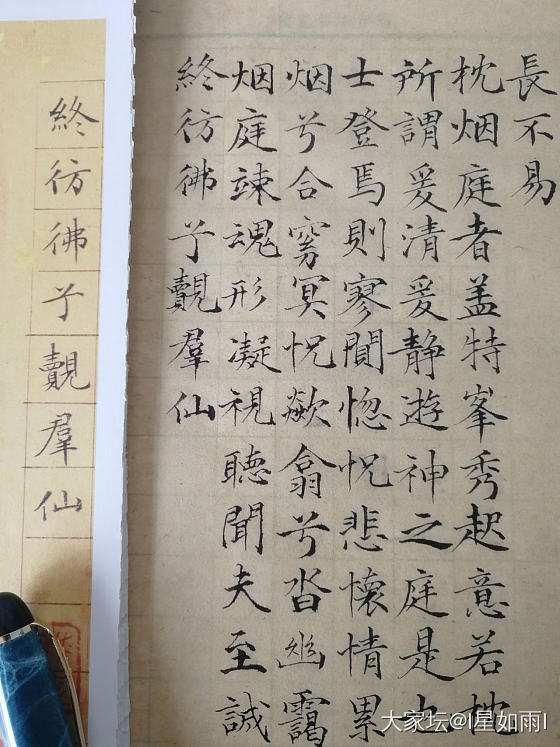 長不易
枕烟庭者盖特峯秀起意若枕
所謂爰清爰静遊神之庭是也
士登焉則寥閴惚怳悲懷情累
烟兮合窈冥怳欻翕兮沓幽靄
烟庭竦魂形凝視聽聞夫至誠
終彷彿兮覿羣仙
終彷彿兮覿羣仙
大家坛@I星如雨I